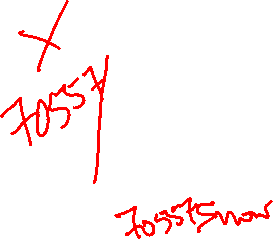 X
70557
70557Snow